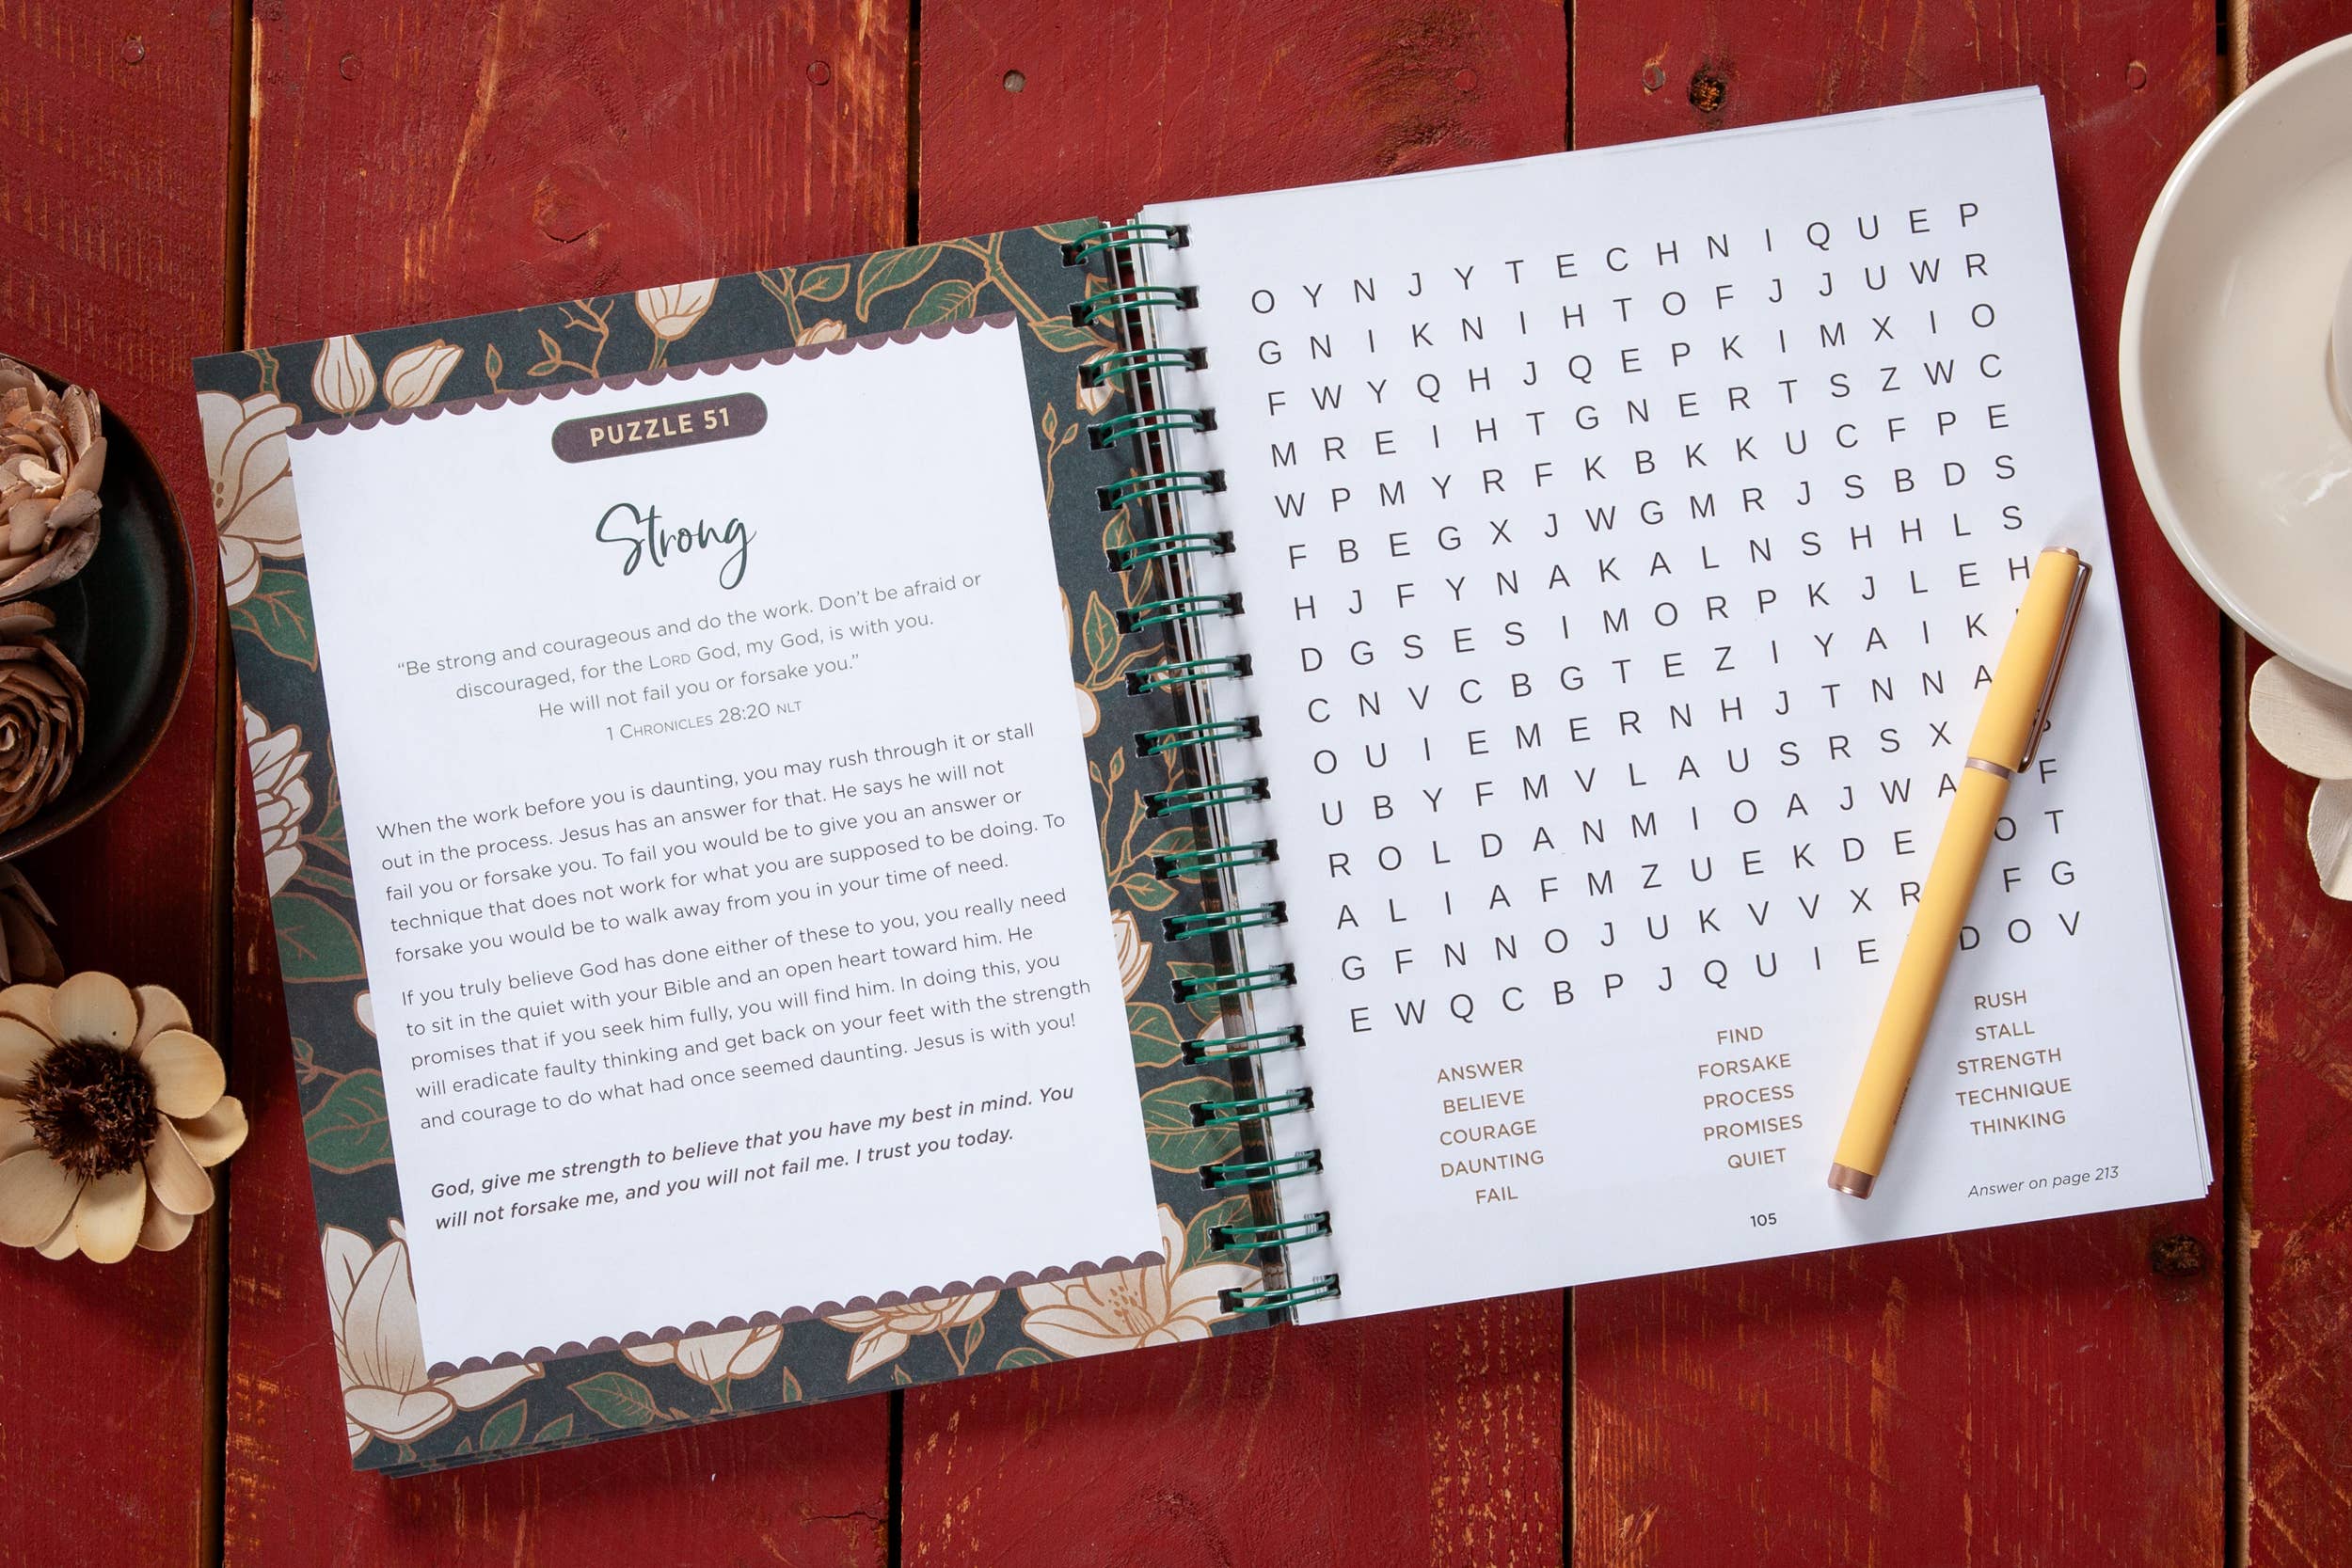 PUZZLE 51
Strong
“Be strong and courageous and do the work. Don’t be afraid or
discouraged, for the LORD God, my God, is with you.
He will not fail you or forsake you.”
1 CHRONICLES 28:20 NLT
When the work before you is daunting, you may rush through it or stall
out in the process. Jesus has an answer for that. He says he will not
fail you or forsake you. To fail you would be to give you an answer or
technique that does not work for what you are supposed to be doing. To
forsake you would be to walk away from you in your time of need.
If you truly believe God has done either of these to you, you really need
to sit in the quiet with your Bible and an open heart toward him. He
promises that if you seek him fully, you will find him. In doing this, you
will eradicate faulty thinking and get back on your feet with the strength
and courage to do what had once seemed daunting. Jesus is with you!
God, give me strength to believe that you have my best in mind. You
will not forsake me, and you will not fail me. I trust you today.
O Y N J Y T E C H N I Q U E P
G N I K N I H T O F J J U W R
F W Y Q H J Q E P K I M X I O
M R E I H T G N E R T S Z W C
W P M Y R F K B K K U C F P E
F B E G X J W G M R J S B D S
H J F Y N A K A L N S H H L S
D G S E S I M O R P K J L E H
C N V C B G T E Z I Y A I K
O U I E M E R N H J T N N A
U B Y F M V L A U S R S X S
R O L D A N M I O A J W A F
A L I A F M Z U E K D E O T
G F N N O J U K V V X R F G
E W Q C B P J Q U I E D O V
ANSWER
BELIEVE
COURAGE
DAUNTING
FAIL
FIND
FORSAKE
PROCESS
PROMISES
QUIET
RUSH
STALL
STRENGTH
TECHNIQUE
THINKING
Answer on page 213
105